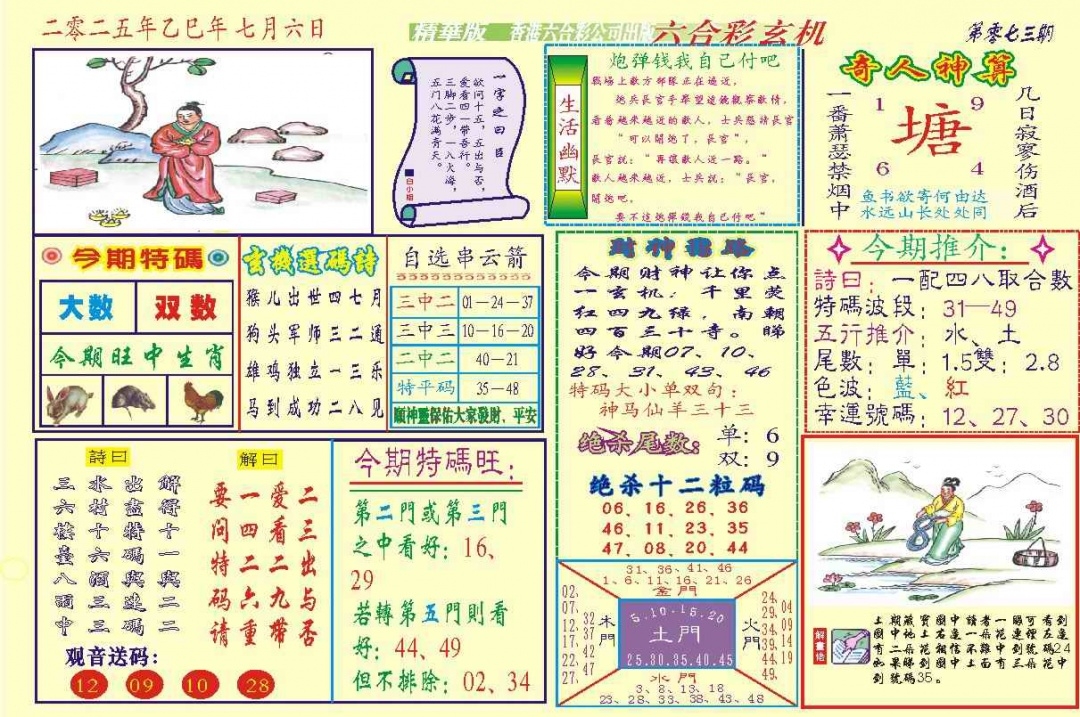 二零二五年乙巳年七月六日
精華版 香港六合彩公司出版
六合彩玄机
第零七三期
一字之曰
欲问十五，五出与否，
爱看四一带吾行。
三脚二步，一入火海，
五门八花满青天。
白小姐
生活幽默
炮弹钱我自己付吧
戰場上敵方部隊正在逼近，
炮兵長官手舉望遠鏡觀察敵情，
看着越来越近的敵人，士兵懇請長官
“可以開炮了，長官”
長官説：“再讓敵人近一路。”
敵人越来越近，士兵説：“長官，
開炮吧，
要不這炮彈钱我自己付吧”
奇人神算
一番萧瑟禁烟中
1 9
塘
6 4
几日寂寥伤酒后
鱼书欲寄何由达
水远山长处处同
今期特碼
大数 双数
今期旺中生肖
玄機選碼詩
猴儿出世四七月
狗头军师三二通
雄鸡独立一三乐
马到成功二八见
自选串云箭
三中二 01—24—37
三中三 10—16—20
二中二 40—21
特平码 35—48
順神靈保佑大家發財、平安
財神
今期财神让你点
一玄机：千里荧
红四九绿，南朝
四百三十寺。睇
好今期07、10、
28、31、43、46
特码大小单双句：
神马仙羊三十三
绝杀尾数： 单：6
双：9
绝杀十二粒码
06、16、26、36
46、11、23、35
47、08、20、44
今期推介：
詩曰：一配四八取合數
特碼波段：31—49
五行推介：水、土
尾數：單：1.5雙：2.8
色波：藍、紅
幸運號碼：12、27、30
詩曰
三六楼臺八面中
水村十六酒三三
出盡特碼與速碼
解得十一與二二
解曰
要问特码请
一四二六重
爱看二九带
二三出与否
观音送码：
12 09 10 28
今期特碼旺：
第二門或第三門
之中看好：16、
29
若轉第五門則看
好：44、49
但不排除：02、34
31、36、41、46
1、6、11、16、21、26
金門
02、07、12、17、22、27
32、37、42、47
木門
5.10-15.20
土門
25.30.35.40.45
火門
24、29、34、39、44、49
04、09、14、19
水門
3、8、13、18
23、28、33、38、43、48
解畫佬
土期藏寶圖中讀者一睇可看到
圖中她上右邊一朵花連到左邊
有二朵花相信不難中可號碼24
如果睇到圖中上面有三朵花中
到號碼35。